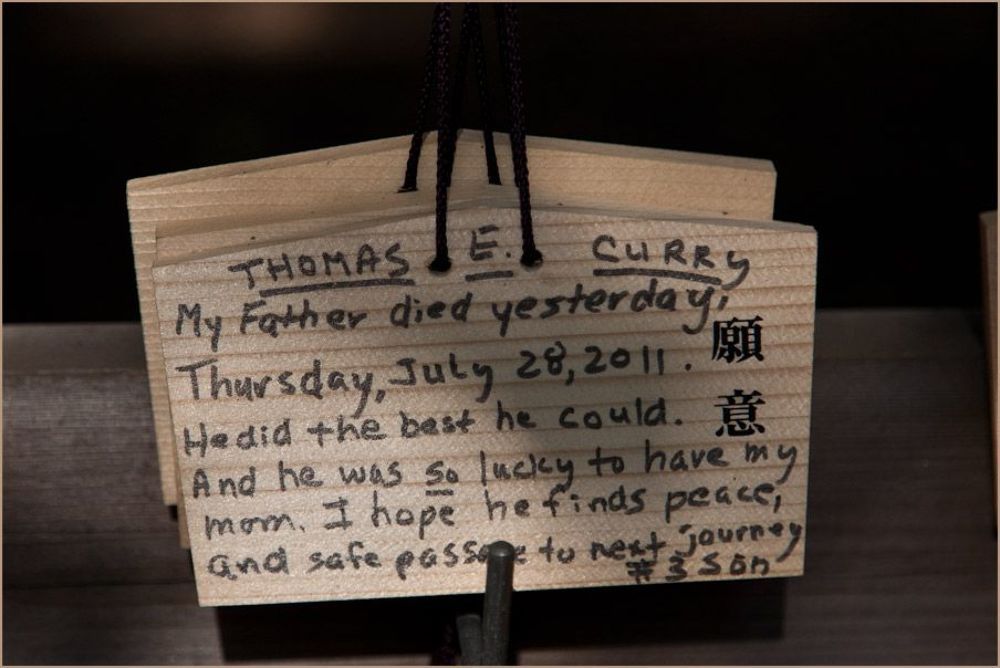 THOMAS E. CURRY
My Father died yesterday,
Thursday, July 28, 2011.
He did the best he could.
And he was so lucky to have my
mom. I hope he finds peace,
and safe passage to next journey
#3 Son
願意